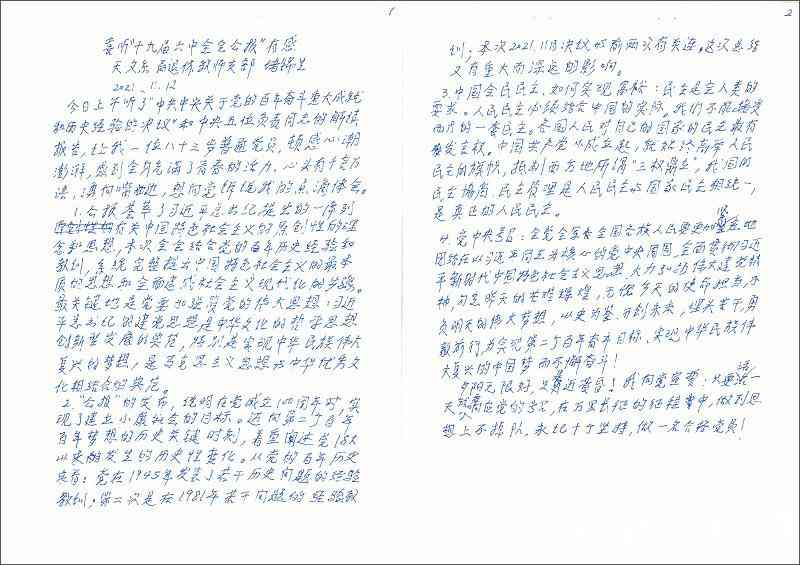 1
喜听"十九届六中全会公报"有感
天文系 离退休教师支部
2021.11.12
今日上午听了"中共中央关于党的百年奋斗重大成就
和历史经验的决议"和中央五位负责同志的解读
报告,让我一位八十三岁普通党员,顿感心潮
澎湃,感到全身充满了青春的活力,心头有千言万
语,涌向嘴边,想向党倾诉我的点滴体会。
1.公报荟萃了习近平总书记提出的一系列
有关中国特色社会主义的原创性的理
念和思想,本次全会结合党的百年历史经验和
教训,系统完整提出中国特色社会主义的最本
质的思想和全面建成社会主义现代化的步骤。
最关键也是党要管党的伟大思想:习近
平总书记的建党思想是中华文化的哲学思想
创新型发展的典范,特别是实现中华民族伟大
复兴的梦想,是马克思主义思想与中华优秀文
化相结合的典范。
2."公报"的发布,说明在党成立100周年时,实
现了建立小康社会的目标。迈向第二个百年
百年梦想的历史关键时刻,着重阐述党18大
以来所发生的历史性变化。从党的百年历史
来看:党在1945年发表了若干历史问题的经验
教训;第二次是在1981年若干问题的经验教
2
训;本次2021.11月决议与前两次有关连。这次总结
又有重大而深远的影响。
3.中国全民民主,如何实现落根:民主是全人类的
要求。人民民主必须结合中国的实际。我们不能接受
西方的一套民主。各国人民对自己的国家的民主最有
发言权。中国共产党从成立起,就始终高举人民
民主的旗帜,抵制西方地所谓"三权鼎立",我国的
民主协商,民主管理是人民民主与国家民主相统一,
是真正的人民民主。
4.党中央号召:全党全军和全国各族人民要更加紧密地
团结在以习近平同志为核心的党中央周围,全面贯彻习近
平新时代中国特色社会主义思想,大力弘扬伟大建党精
神,勿忘昨天的苦难辉煌,无愧今天的使命担当,不
负明天的伟大梦想,以史为鉴,开创未来,埋头苦干,勇
毅前行,为实现第二个百年奋斗目标,实现中华民族伟
大复兴的中国梦而不懈奋斗!
夕阳无限好,只是近黄昏!我向党宣誓:只要活一
天就会响应党的号召,在万里长征的征程中,做到思
想上不掉队,永记十个坚持,做一名合格党员!